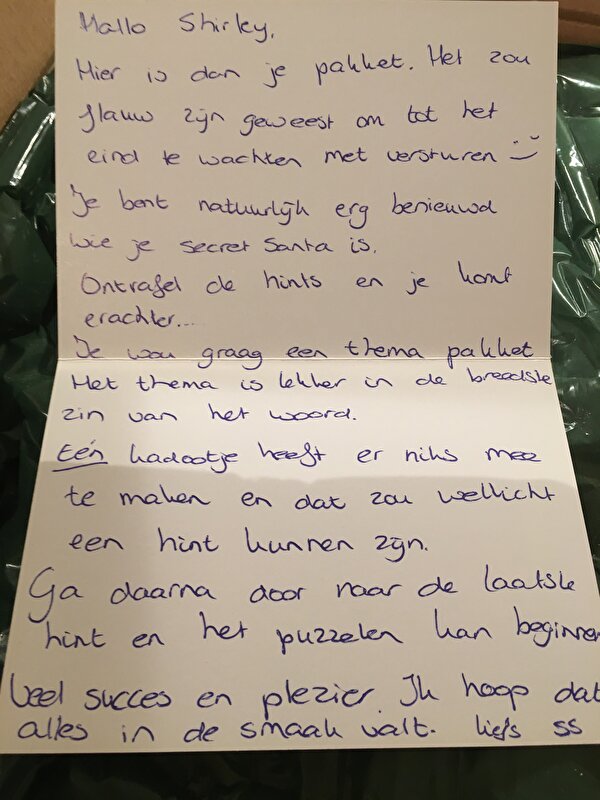 Hallo Shirley,
Hier is dan je pakket. Het zou
flauw zijn geweest om tot het
eind te wachten met versturen :-)
Je bent natuurlijk erg benieuwd
wie je secret Santa is.
Ontrafel de hints en je komt
erachter....
Je wou graag een thema pakket
Het thema is lekker in de breedste
zin van het woord.
Eén kadootje heeft er niks mee
te maken en dat zou wellicht
een hint kunnen zijn.
Ga daarna door naar de laatste
hint en het puzzelen kan beginnen
Veel succes en plezier. Ik hoop dat
alles in de smaak valt. liefs SS